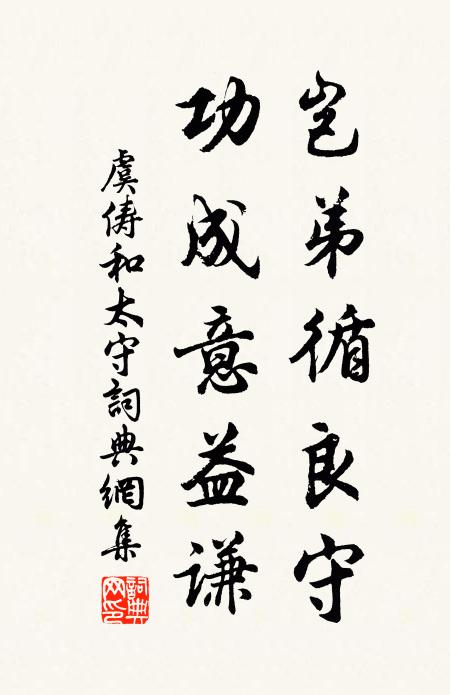 岂弟循良守
功成意益謙
虞儔和太守詞典網集
詞典网印